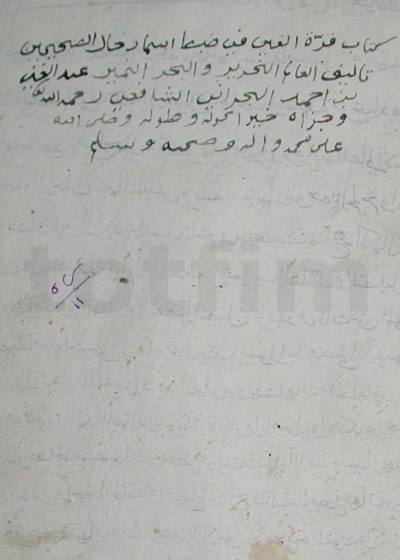 كتاب قرة العين في ضبط اسما رجال الصحيحين
تاليف العالم النحرير والبحر النمير عبد الغني
بن احمد البحراني الشافعي رحمه الله
وجزاه خيرا بحوله وطوله وصلى الله
على محمد واله وصحبه وسلم